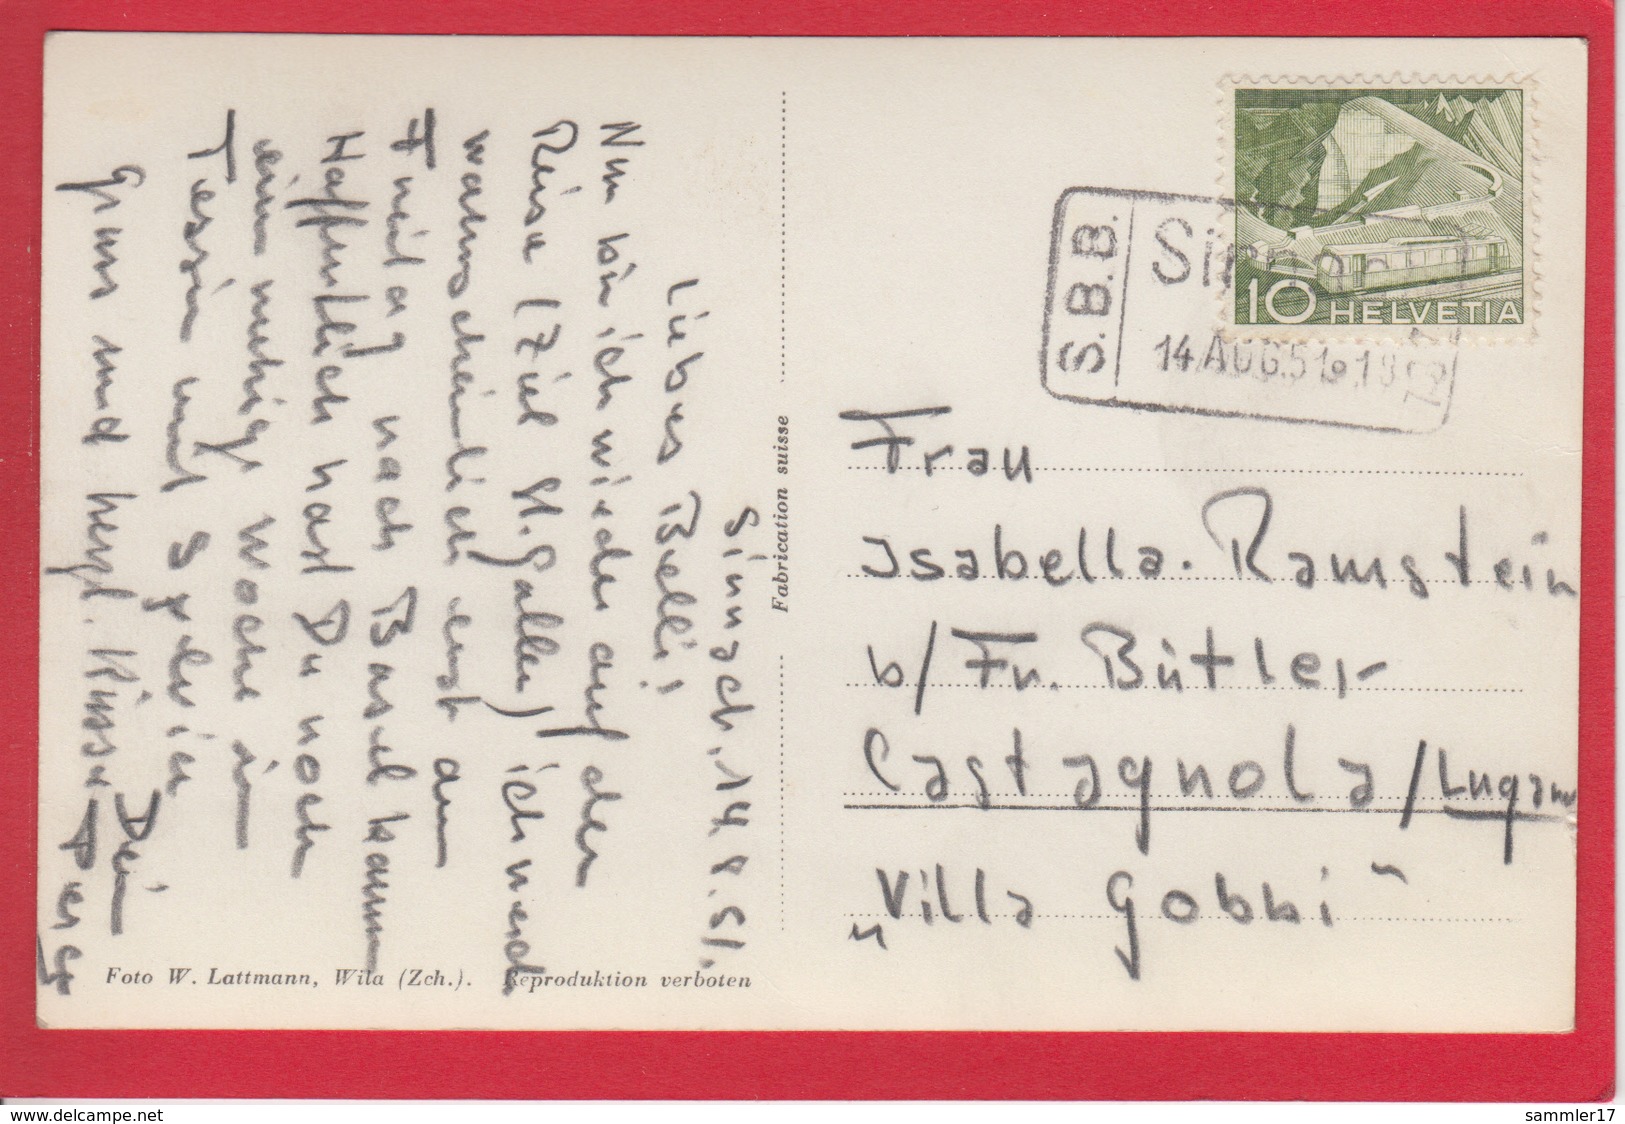 Sirnach, 14.8.51.
Liebes Belli!
Nun bin ich wieder auf der
Reise (Ziel St. Gallen) ich werde
wahrscheinlich erst am
Freitag nach Basel kann
Hoffentlich hast Du noch
eine ruhige Woche im
Tessin mit Sylvia
Gruss und herzl. Küsse Dein
Foto W. Lattmann, Wila (Zch.). Reproduktion verboten
Fabrication suisse
S.B.B.
Sirnach
14 AUG. 51
10 HELVETIA
Frau
Isabella. Ramstein
b/ Fr. Bütler
Castagnola / Lugano
„Villa Gobbi"
delcampe.net
sammler17